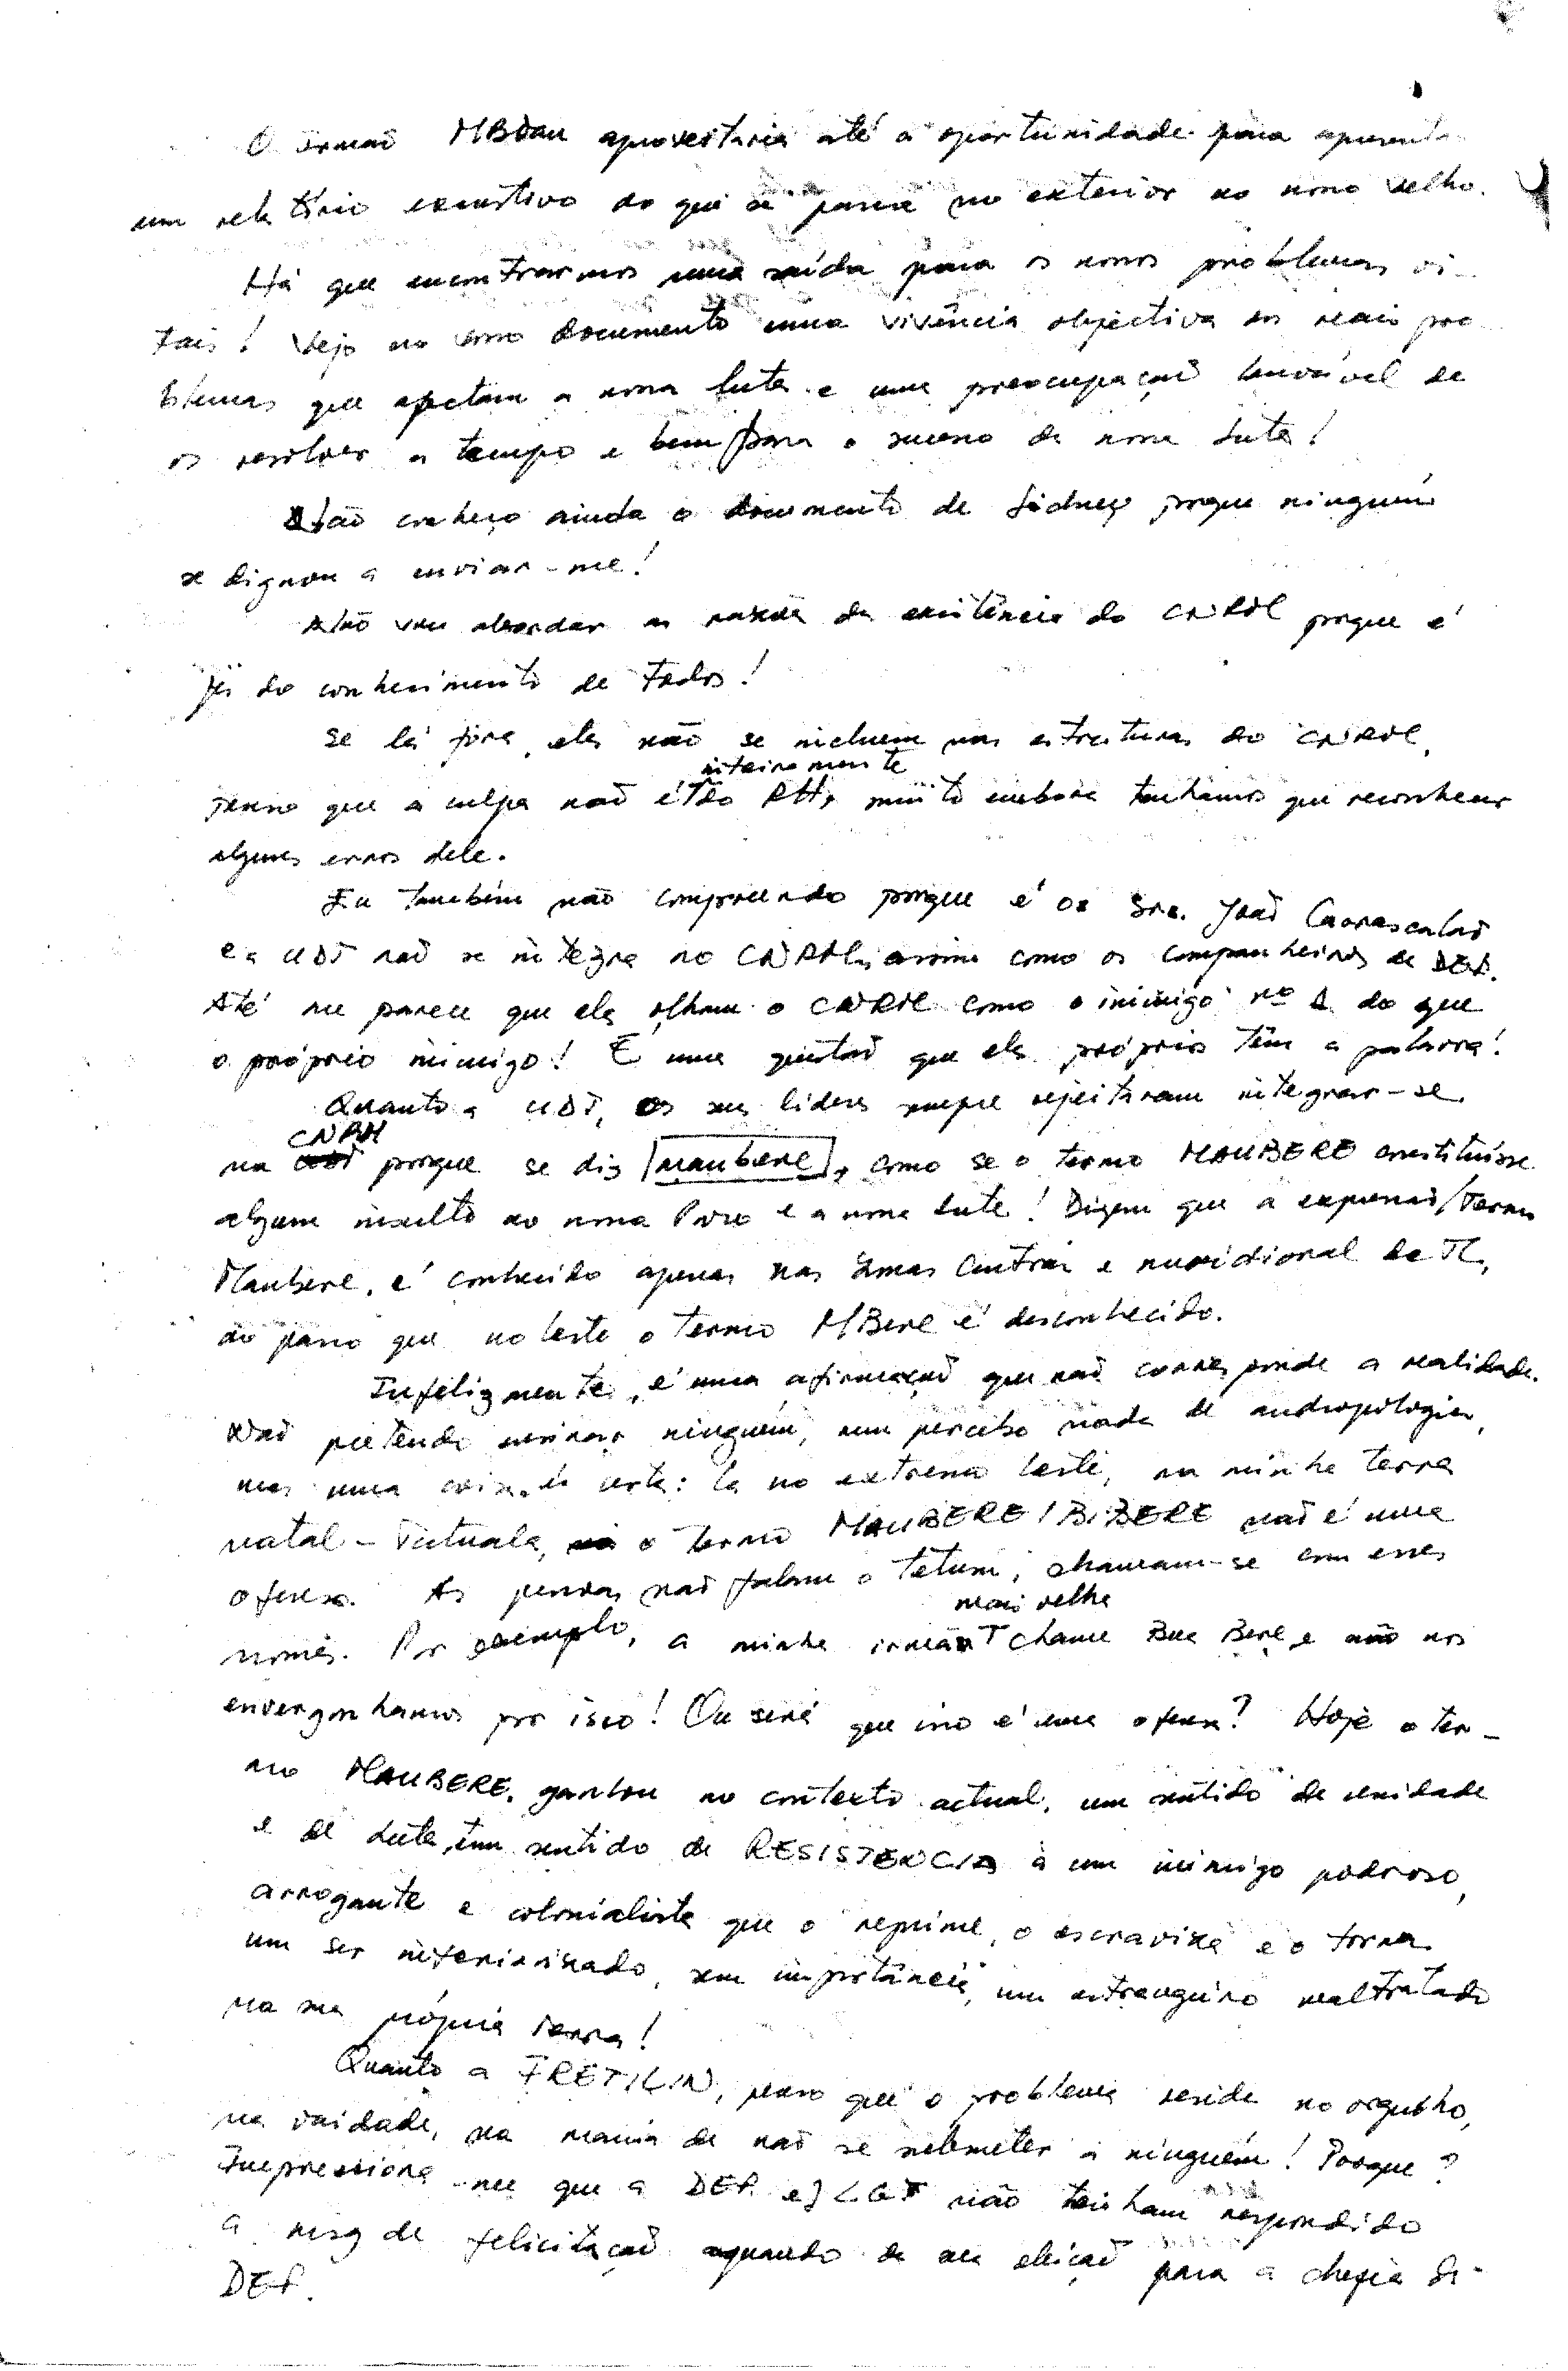 O irmão MBdau aproveitaria até a oportunidade para apresentar
um relatório exaustivo do que se passa no exterior ao nosso velho.
Há que encontrarmos uma saída para os nossos problemas vi-
tais! Vejo no vosso documento uma vivência objectiva dos reais pro-
blemas que afectam a nossa luta e uma preocupação louvável de
os resolver a tempo e bem para o sucesso da nossa luta!
Não conheço ainda o documento de Sidney porque ninguém
se dignou a enviar-me!
Não vou abordar as razões da existência do CNRM porque é
já do conhecimento de todos!
Se lá fora, eles não se incluem nas estruturas do CNRM,
penso que a culpa não é inteiramente do RH, muito embora tenhamos que reconhecer
alguns erros dele.
Eu também não compreendo porque é os Srs. João Carrascalão
e a UDT não se integra no CNRM, assim como os companheiros da DEF.
Até me parece que eles olham o CNRM como o inimigo nº 1 do que
o próprio inimigo! É uma questão que eles próprios têm a palavra!
Quanto a UDT, os seus líderes sempre rejeitaram integrar-se
na CNRM porque se diz maubere, como se o termo MAUBERE constituísse
algum insulto ao nosso Povo e a nossa luta! Dizem que a expressão/termo
Maubere, é conhecido apenas nas zonas central e meridional de TL,
ao passo que no leste o termo MBere é desconhecido.
Infelizmente, é uma afirmação que não corresponde a realidade.
Não pretendo ensinar ninguém, nem percebo nada de andropologia,
mas uma coisa é certa: lá no extremo leste, na minha terra
natal - Tutuala, o termo MAUBERE/BIBERE não é uma
ofensa. As pessoas não falam o tetum, chamam-se com esses
nomes. Por exemplo, a minha irmã mais velha chama Bue Bere e não nos
envergonhamos por isso! Ou será que isso é uma ofensa? Hoje o ter-
mo MAUBERE, ganhou no contexto actual, um sentido de unidade
e de luta, um sentido de RESISTENCIA a um inimigo poderoso,
arrogante e colonialista que o reprime, o escraviza e o torna
um ser inferiorizado, sem importância, um estrangeiro maltratado
na sua própria terra!
Quanto a FRETILIN, penso que o problema reside no orgulho,
na vaidade, na mania de não se submeter a ninguém! Porque?
Impressiona-me que a DEF e J LGT não tenham respondido
a msg de felicitação aquando da sua eleição para a chefia da
DEF.